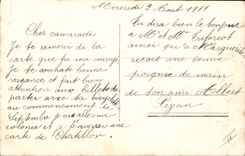 Mercredi 9 Aout 1911
Cher camarade
Je te remercie de la
carte que tu me envoye
Je te souhaite bonne
vacance et fait bien
attention aux
parter avec ta bicyclette
au commencement de
Septembre je
colonie et je t'enverai une
carte de Chatillon.
Tu dira bien le bonjour
a M et Mme
ainsi qu'a Marguerite
recoit une bonne
poignee de main
de ton ami Albert